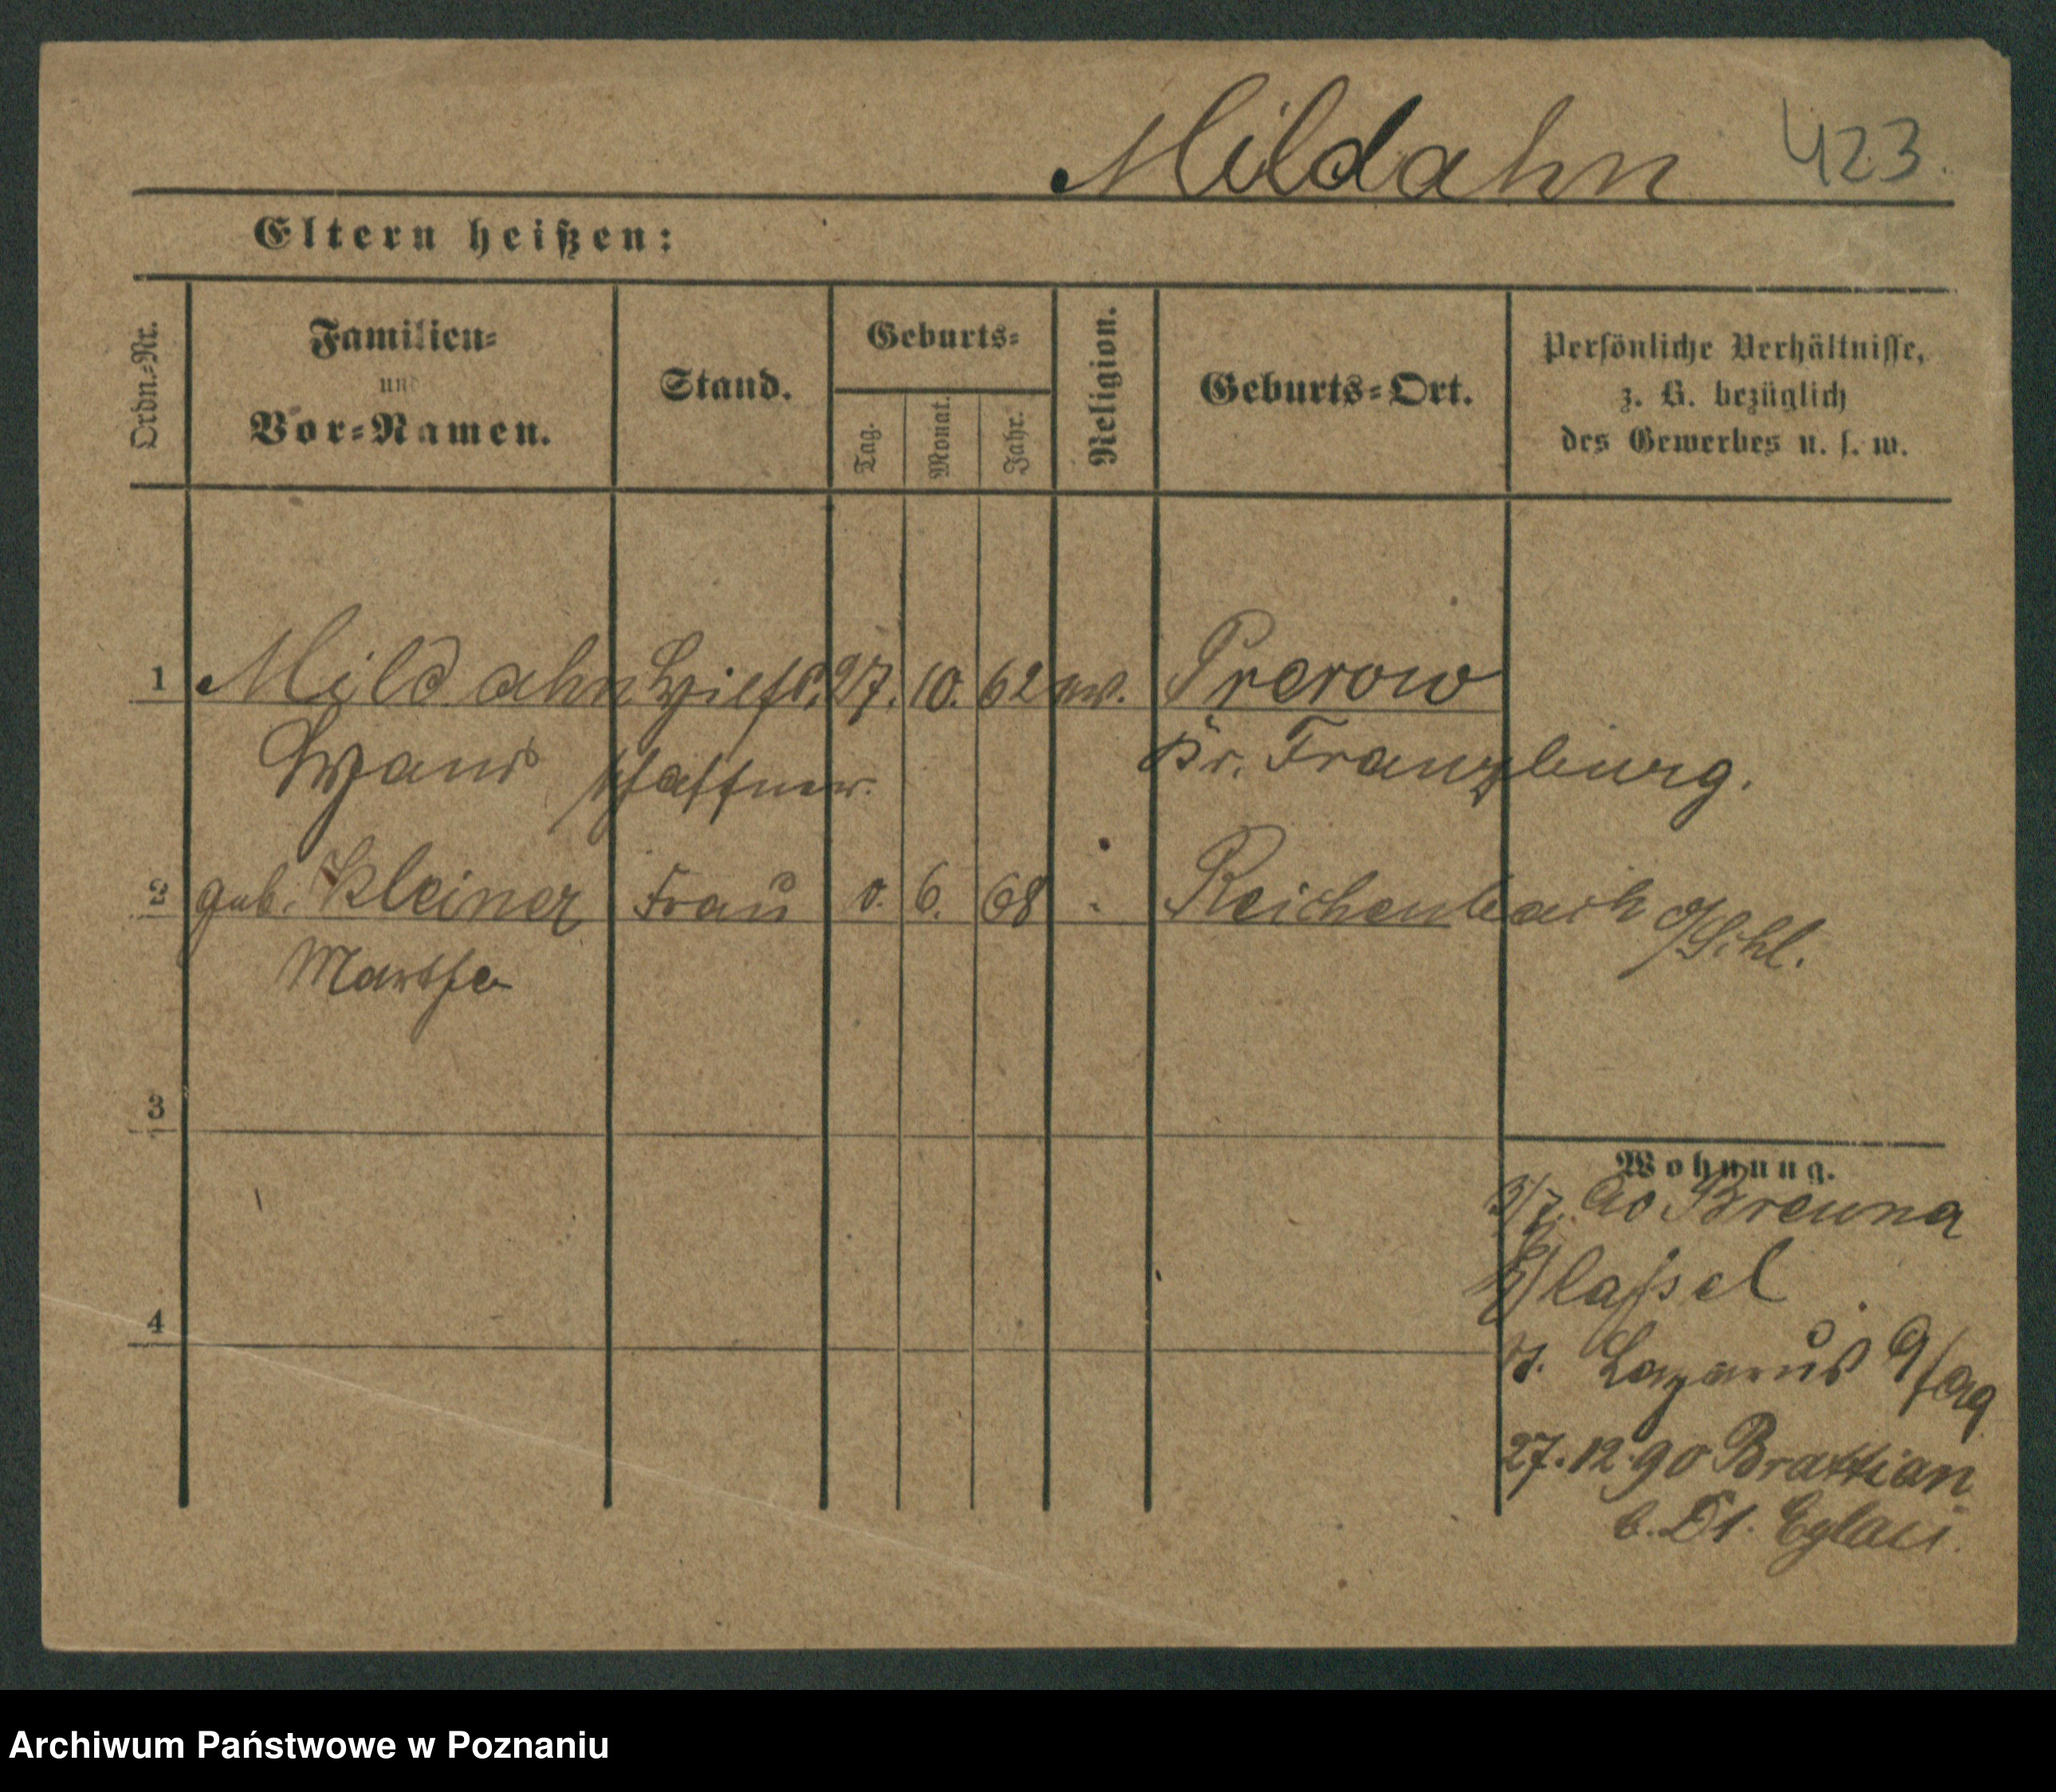 Mildahn 423.
Eltern heißen:
Ordn.-Nr.
Familien-
und
Vor-Namen.
Stand.
Geburts-
Tag.
Monat.
Jahr.
Religion.
Geburts-Ort.
Persönliche Verhältnisse,
z. B. bezüglich
des Gewerbes u. s. w.
1 Mildahn Hilfs 27. 10. 62 ev. Prerow
Hans schaffner. Kr. Franzburg.
2 geb. Kleiner Frau 6. 68 Reichenbach o/Schl.
Martha
3
Wohnung.
3/7. 90 Breuna
4
St. Lazarus 9
27.12.90 Brattian
b. Dt. Eylau.
Archiwum Państwowe w Poznaniu